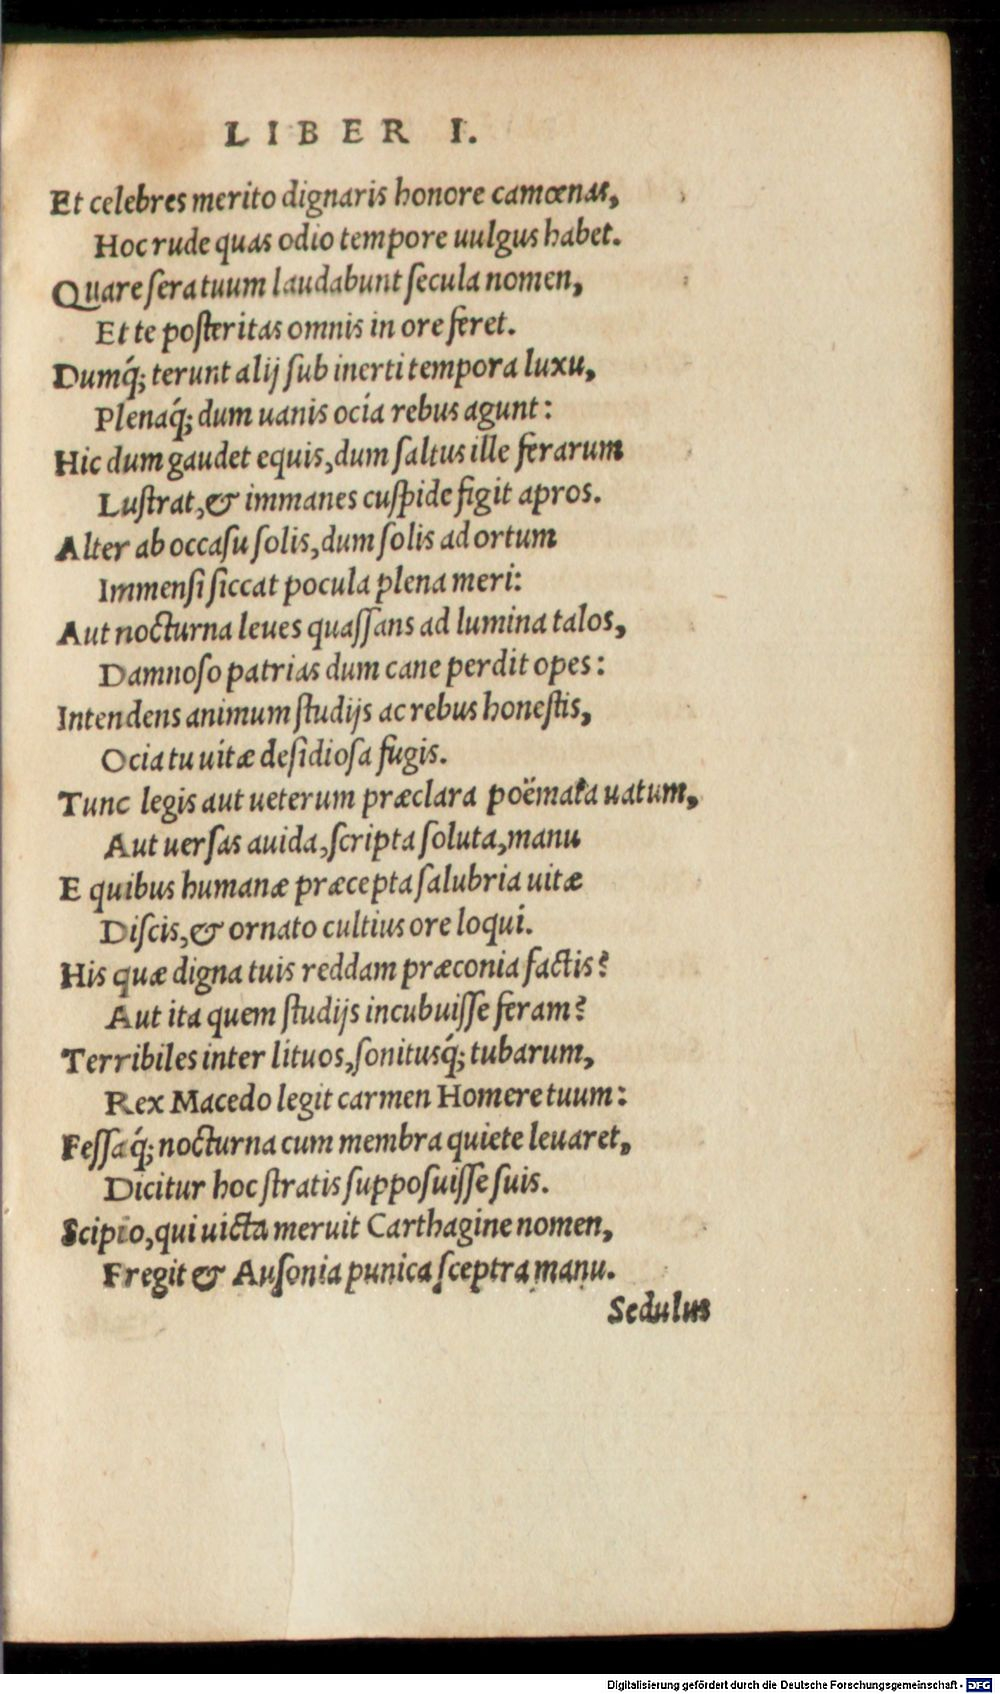 LIBER I.
Et celebres merito dignaris honore camœnas,
Hoc rude quas odio tempore uulgus habet.
Quare sera tuum laudabunt secula nomen,
Et te posteritas omnis in ore feret.
Dumq́; terunt alij sub inerti tempora luxu,
Plenaq́; dum uanis ocia rebus agunt:
Hic dum gaudet equis, dum saltus ille ferarum
Lustrat, & immanes cuspide figit apros.
Alter ab occasu solis, dum solis ad ortum
Immensi siccat pocula plena meri:
Aut nocturna leues quassans ad lumina talos,
Damnoso patrias dum cane perdit opes:
Intendens animum studijs ac rebus honestis,
Ocia tu uitæ desidiosa fugis.
Tunc legis aut ueterum præclara poëmata uatum,
Aut uersas auida, scripta soluta, manu
E quibus humanæ præcepta salubria uitæ
Discis, & ornato cultius ore loqui.
His quæ digna tuis reddam præconia factis?
Aut ita quem studijs incubuisse feram?
Terribiles inter lituos, sonitusq́; tubarum,
Rex Macedo legit carmen Homere tuum:
Fessaq́; nocturna cum membra quiete leuaret,
Dicitur hoc stratis supposuisse suis.
Scipio, qui uicta meruit Carthagine nomen,
Fregit & Ausonia punica sceptra manu.
Sedulus
Digitalisierung gefördert durch die Deutsche Forschungsgemeinschaft - DFG